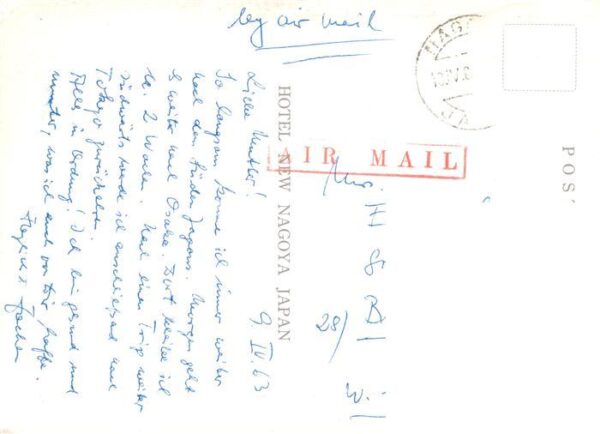 by air mail
NAGO
POS
AIR MAIL
HOTEL NEW NAGOYA JAPAN
9. IV. 63
Liebe Mutter!
So langsam komme ich immer weiter
nach dem Süden Japans. Morgen geht
weiter nach Osaka. Dort bleibe ich
2 Wochen. Nach einem Trip weiter
südwärts werde ich anschließend nach
Tokyo zurückkehren.
Alles in Ordnung! Ich bin gesund und
munter, was ich auch von Dir hoffe.
Jochen
28/